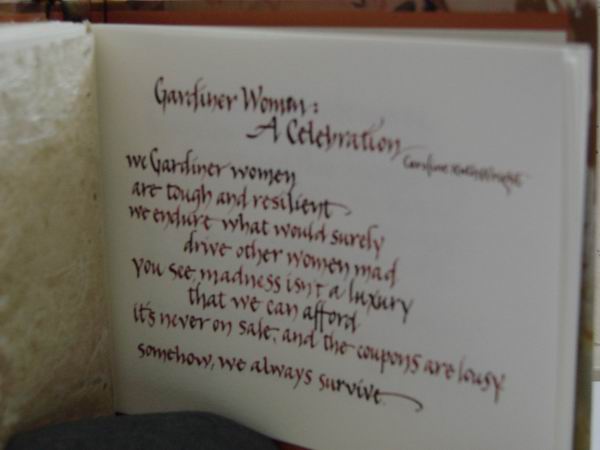 Gardiner Women:
A Celebration
we Gardiner women
are tough and resilient
we endure what would surely
drive other women mad
you see, madness isn't a luxury
that we can afford
it's never on sale, and the coupons are lousy
somehow, we always survive